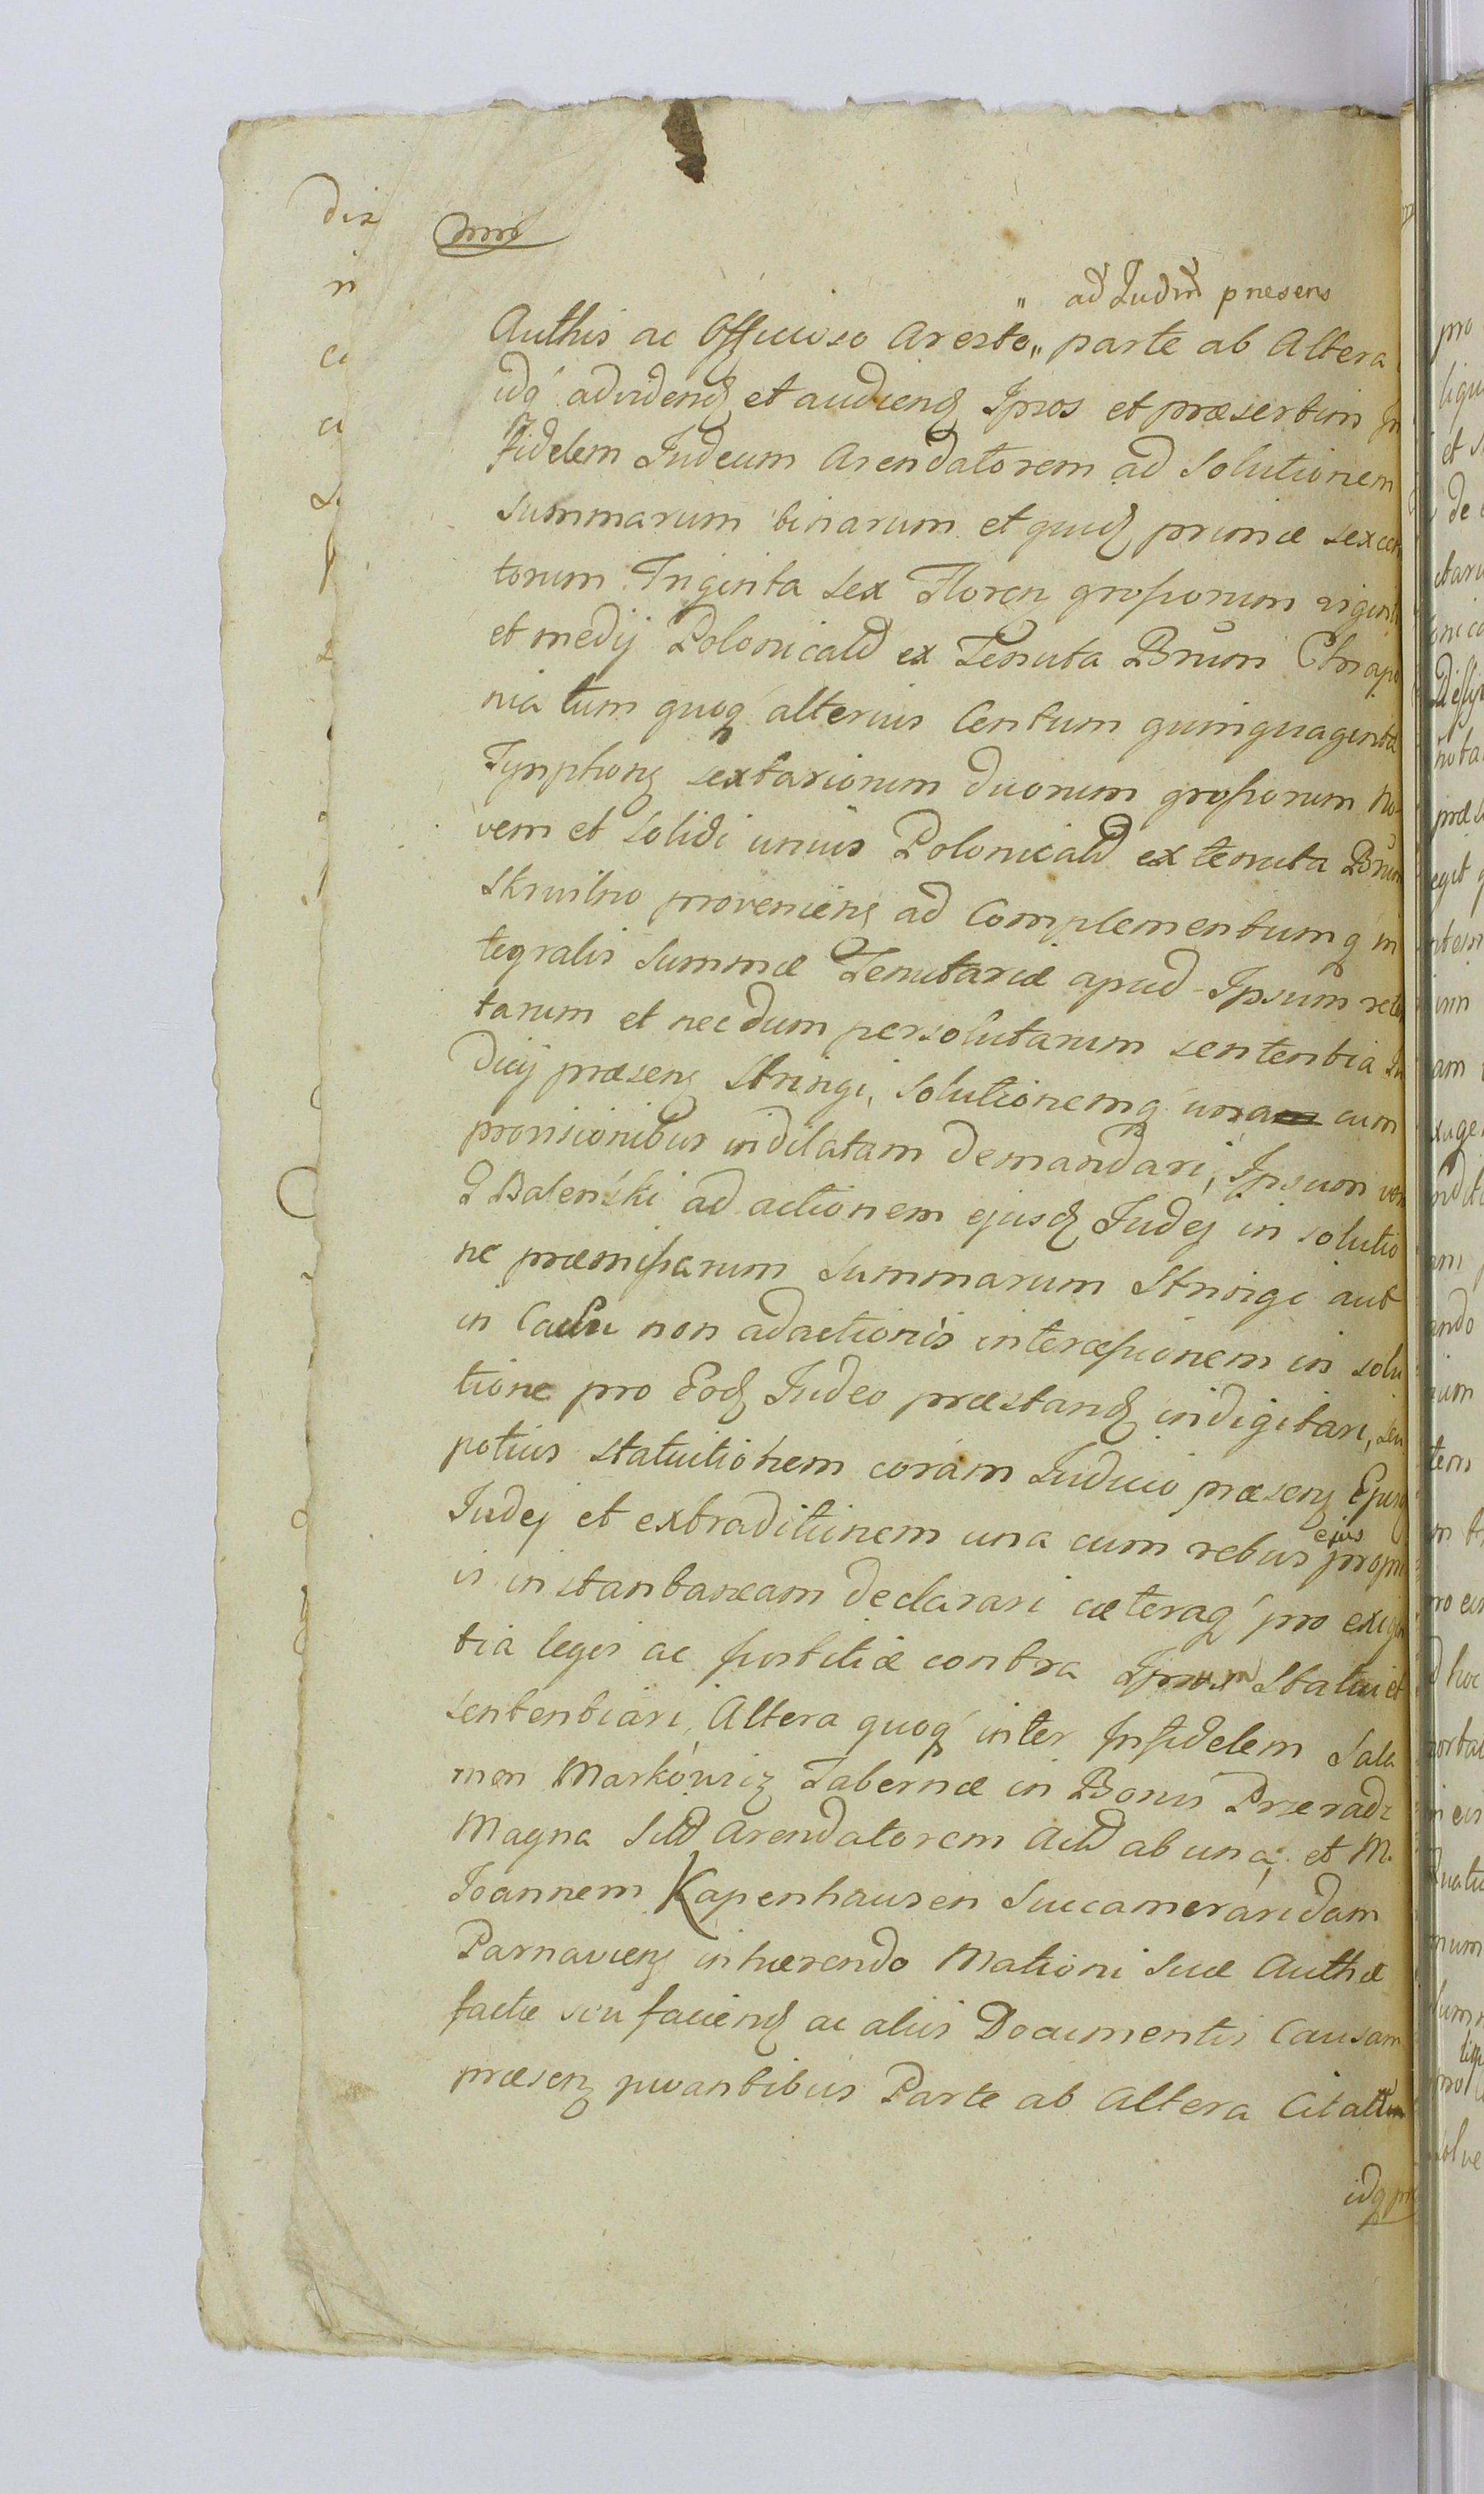 " ad Judm præsens
Authis ac Officioso Aresto „ parte ab Altera
idq' ad videnq et audienq Ipsos et præsertim In
fidelem Judeum Arendatorem ad solutionem
summarum binarum et quidq primæ sexcen
torum Triginta sex Floren grossorum vigint
et medij Polonicald ex Tenuta Bnum Chrapo
nia tum quoq' alterius Centum quinquaginta
Tynphonq sextariorum duorum grossorum No
vem et solidi unius Polonicald ex tenuta Bnum
Skrwilno provenienq ad Complementumq in
tegralis summæ Tenutariæ apud Ipsum reten
tarum et necdum persolutarum sententia Ju
dicij præsenq Stringi, solutionemq una cum
provisionibus indilatam demandari, Ipsum vero
G Baleński ad actionem ejusdq Judej in solutio
ne præmissarum summarum Stringi aut
in Casu non adactionis intercessionem in solu
tione pro Eodq Judeo præstandq indigitari, seu
potius statuitionem coram Judicio præsenq Ejusdq
Judej et extraditionem una cum rebus ejus propri
is instantaneam declarari cæteraq' pro exigen
tia legis ac justitiæ contra Ipsum Statui et
sententiari, Altera quoq' inter Infidelem Sala
mon Markowicz Tabernæ in Bonis Przeradz
Magna Sitd Arendatorem Actd ab una, et M.
Joannem Kapenhausen Succameraridam
Parnavienq inhærendo Mationi suæ Authæ
factæ seu facienq ac aliis Documentis Causam
præsenq juvantibus Parte ab Altera Citatum
idq pr